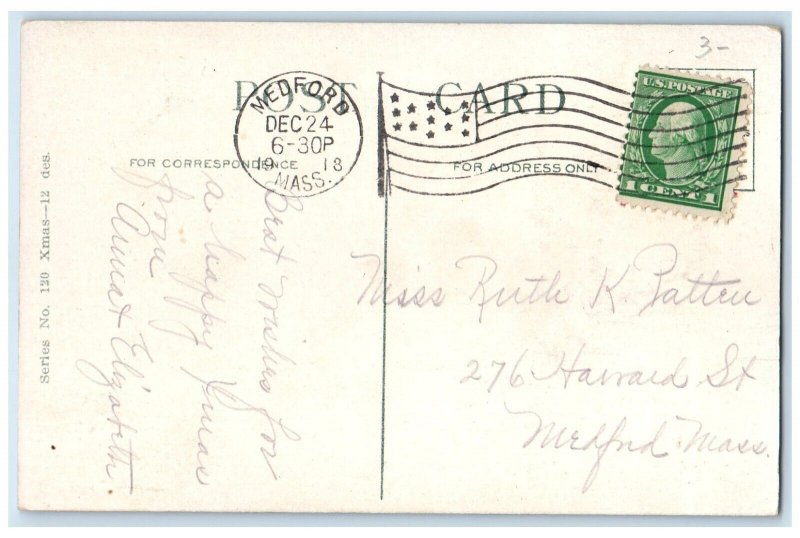 3-
POST CARD
MEDFORD
DEC 24
6-30P
19 18
MASS.
U.S. POSTAGE
1 CENT 1
FOR CORRESPONDENCE
FOR ADDRESS ONLY
Series No. 120 Xmas—12 des.
Best wishes for
a happy Xmas
from
Anna & Elizabeth.
Miss Ruth K. Patten
276 Harvard St
Medford Mass.